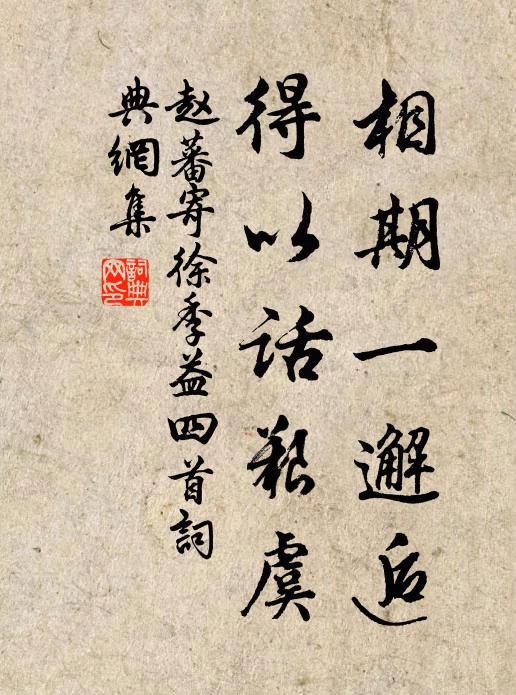 相期一邂逅
得以话艰虞
赵蕃寄徐季益四首词
典網集
詞典
网印